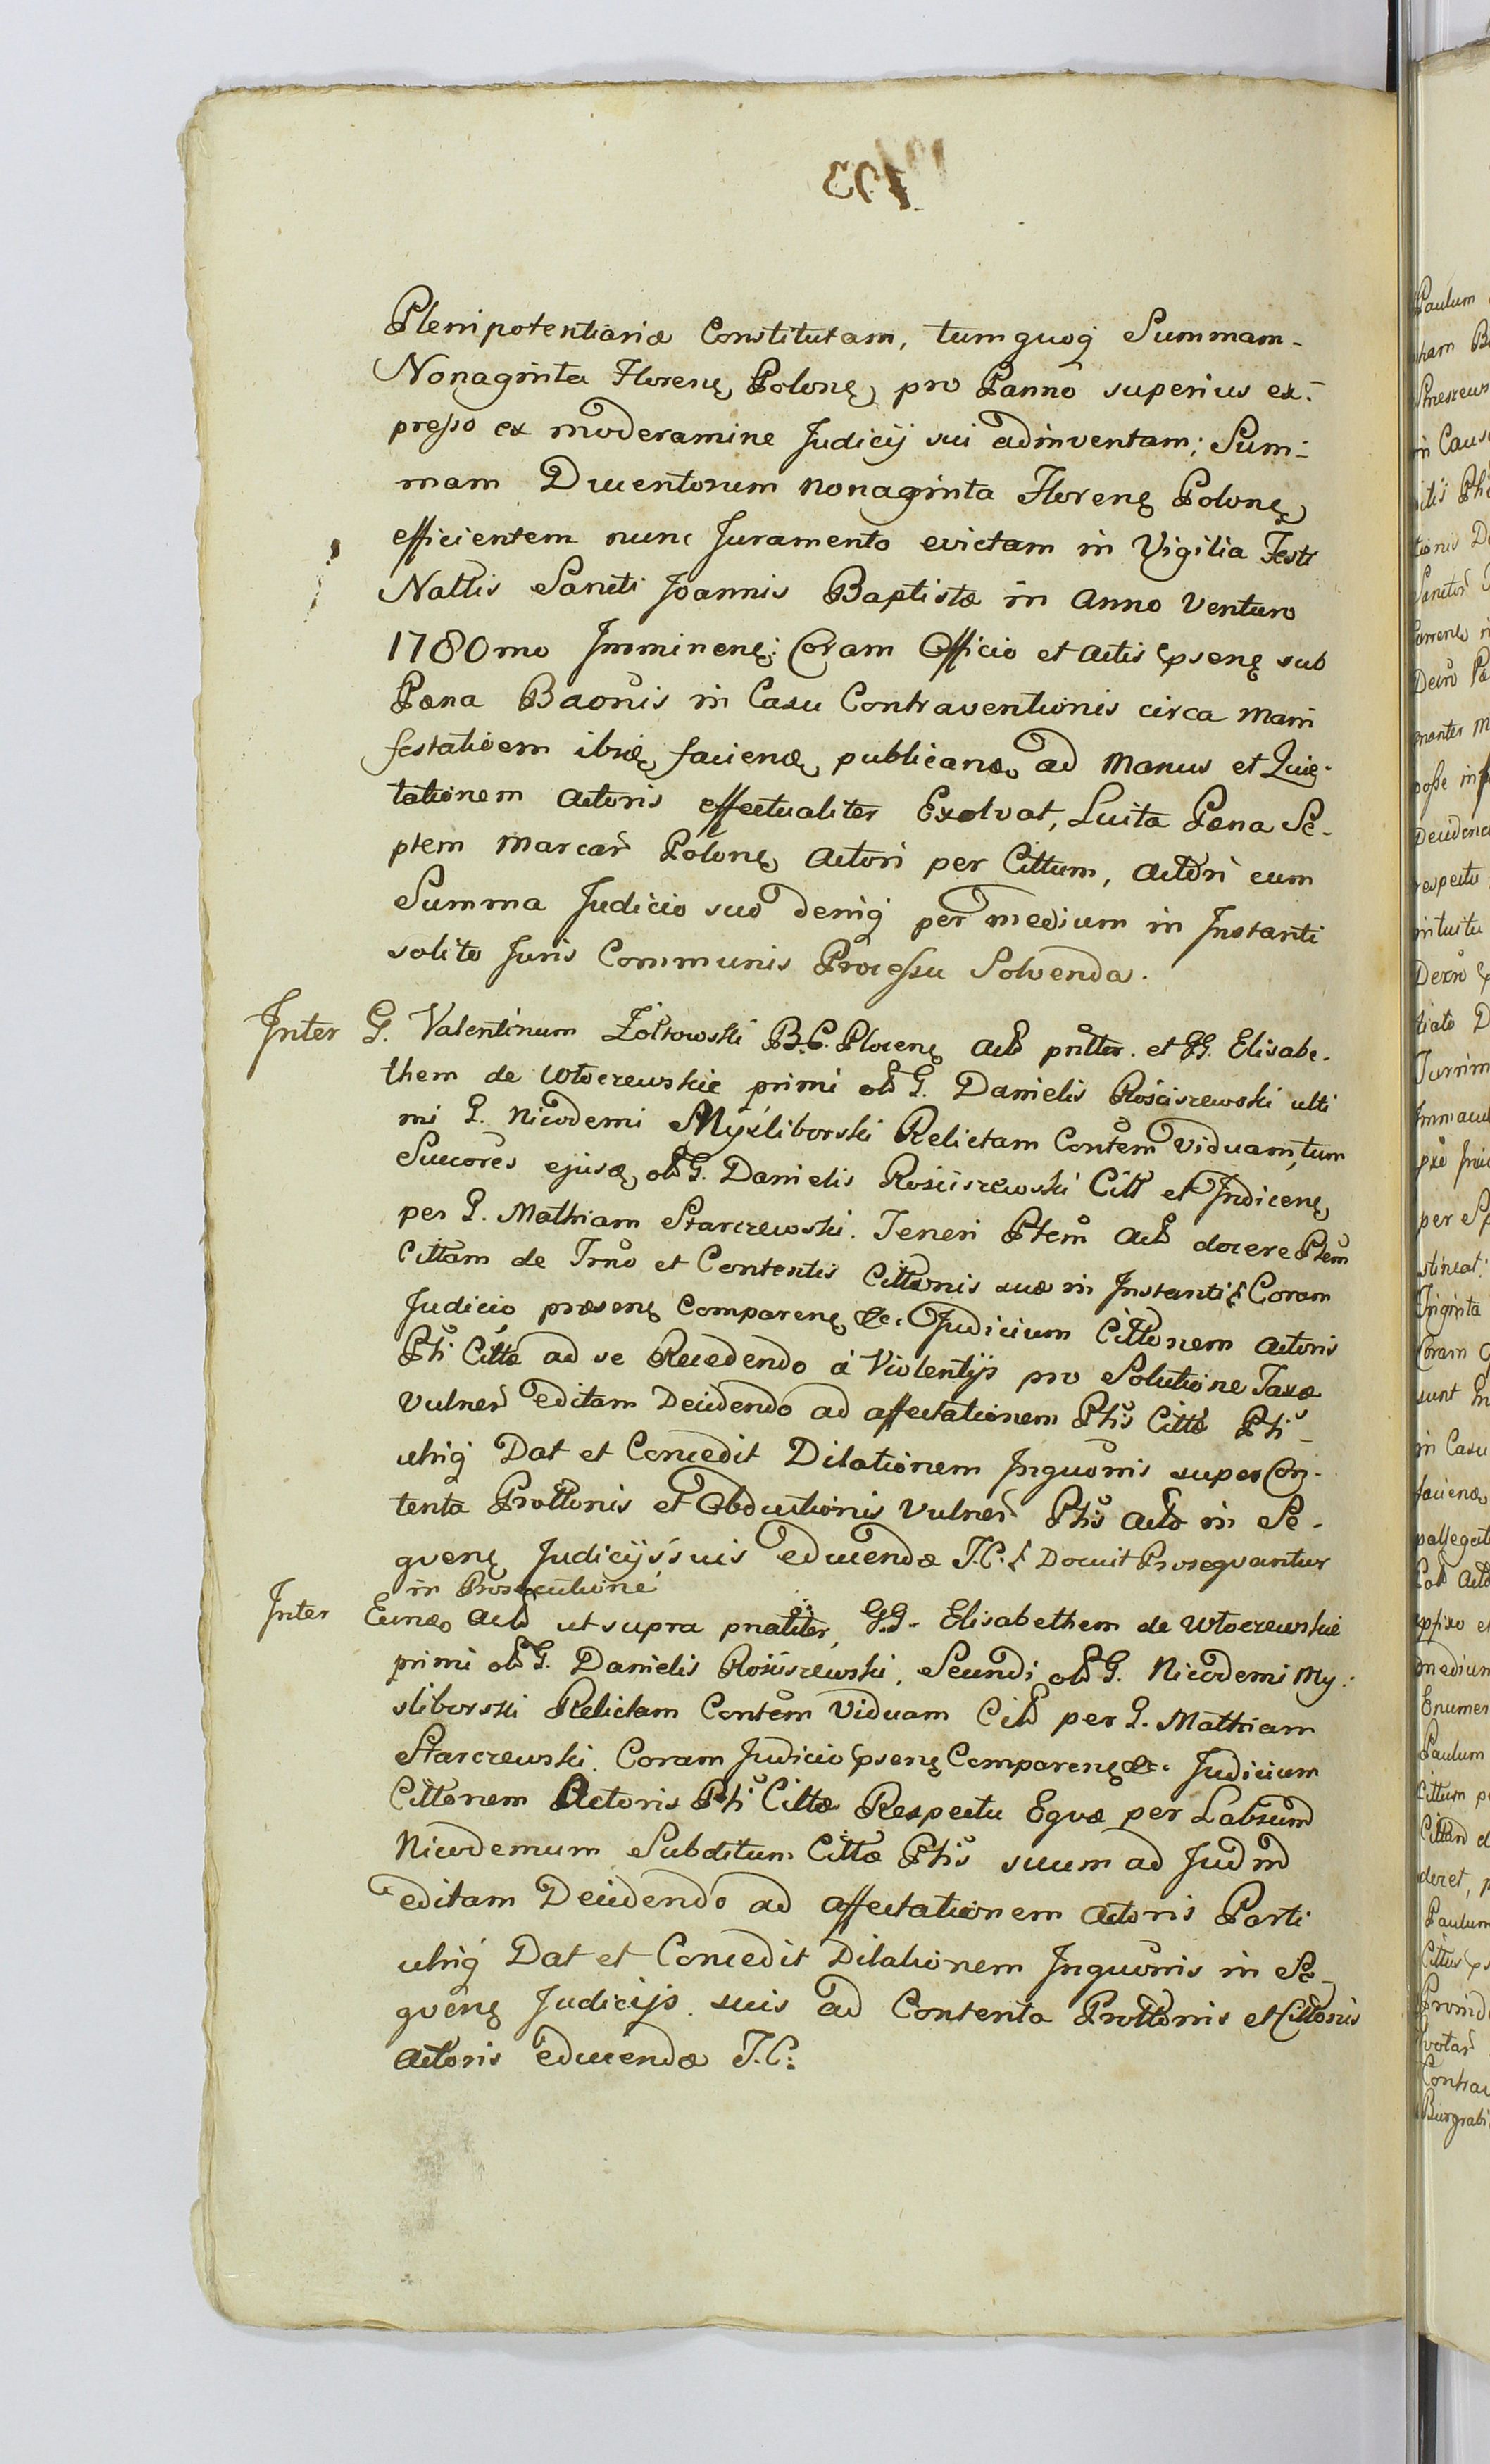 Plenipotentiariæ Constitutam, tumquoq Summam-
Nonaginta Florenę Polonę pro Panno superius ex-
presso ex moderamine Judicij sui adinventam; Sum-
mam Ducentorum nonaginta Florenę Polonę
efficientem nunc Juramento evictam in Vigilia Festi
Nattis Sancti Joannis Baptistæ in Anno Venturo
1780mo Imminenę: Coram Officio et Actis psenę sub
Pæna Baonis in Casu Contraventionis circa Mani
festatioem ibię facienę publicanæ ad Manus et Quie-
tationem Actoris effectualiter Exolvat, Luita Pæna Se-
ptem Marcar Polonę Actori per Cittum, Actori cum
Summa Judicio suo deniq per medium in Instanti
solito Juris Communis Processu Solvenda.
Inter G. Valentinum Żółtowski B.C. Plocenę Act pntter. et GG. Elisabe-
them de Wtoczewskie primi ol G. Danielis Rościszewski ulti
mi G. Nicodemi Myśliborski Relictam Contem Viduam, tum
Succores ejusæ ol G. Danielis Rościszewski Citt et Indicenę
per G. Mathiam Starczewski. Teneri Ptem Act docere Ptem
Cittam de Trno et Contentis Cittonis suæ in Instanti & Coram
Judicio præsenę Comparenę &c. Judicium Cittonem Actoris
Pti Cittæ ad se Recedendo á Violentijs pro Solutione Taxæ
Vulner editam Decidendo ad affectationem Ptis Cittæ Pti
utriq Dat et Concedit Dilationem Inquonis super Con-
tenta Prottonis et Obductionis Vulner Ptis Act in Se-
quenę Judicijs suis educendæ T.C. & Docuit Prosequantur
in Prosecutione
Inter Eunæ Act ut supra pnaliter, G.G. Elisabethem de Wtoczewskie
primi ol G. Danielis Rościszewski, Secundi ol G. Nicodemi My-
sliborski Relictam Contem Viduam Cit per G. Mathiam
Starczewski. Coram Judicio psenę Comparenę &c. Judicium
Cittonem Actoris Pti Cittæ Respectu Equæ per Labsum
Nicodemum Subditum Cittæ Ptis suum ad Judm
editam Decidendo ad affectationem Actoris Parti
utriq Dat et Concedit Dilationem Inquonis in Se-
quenę Judicijs suis ad Contenta Prottonis et Cittonis
Actoris educendæ T.C.